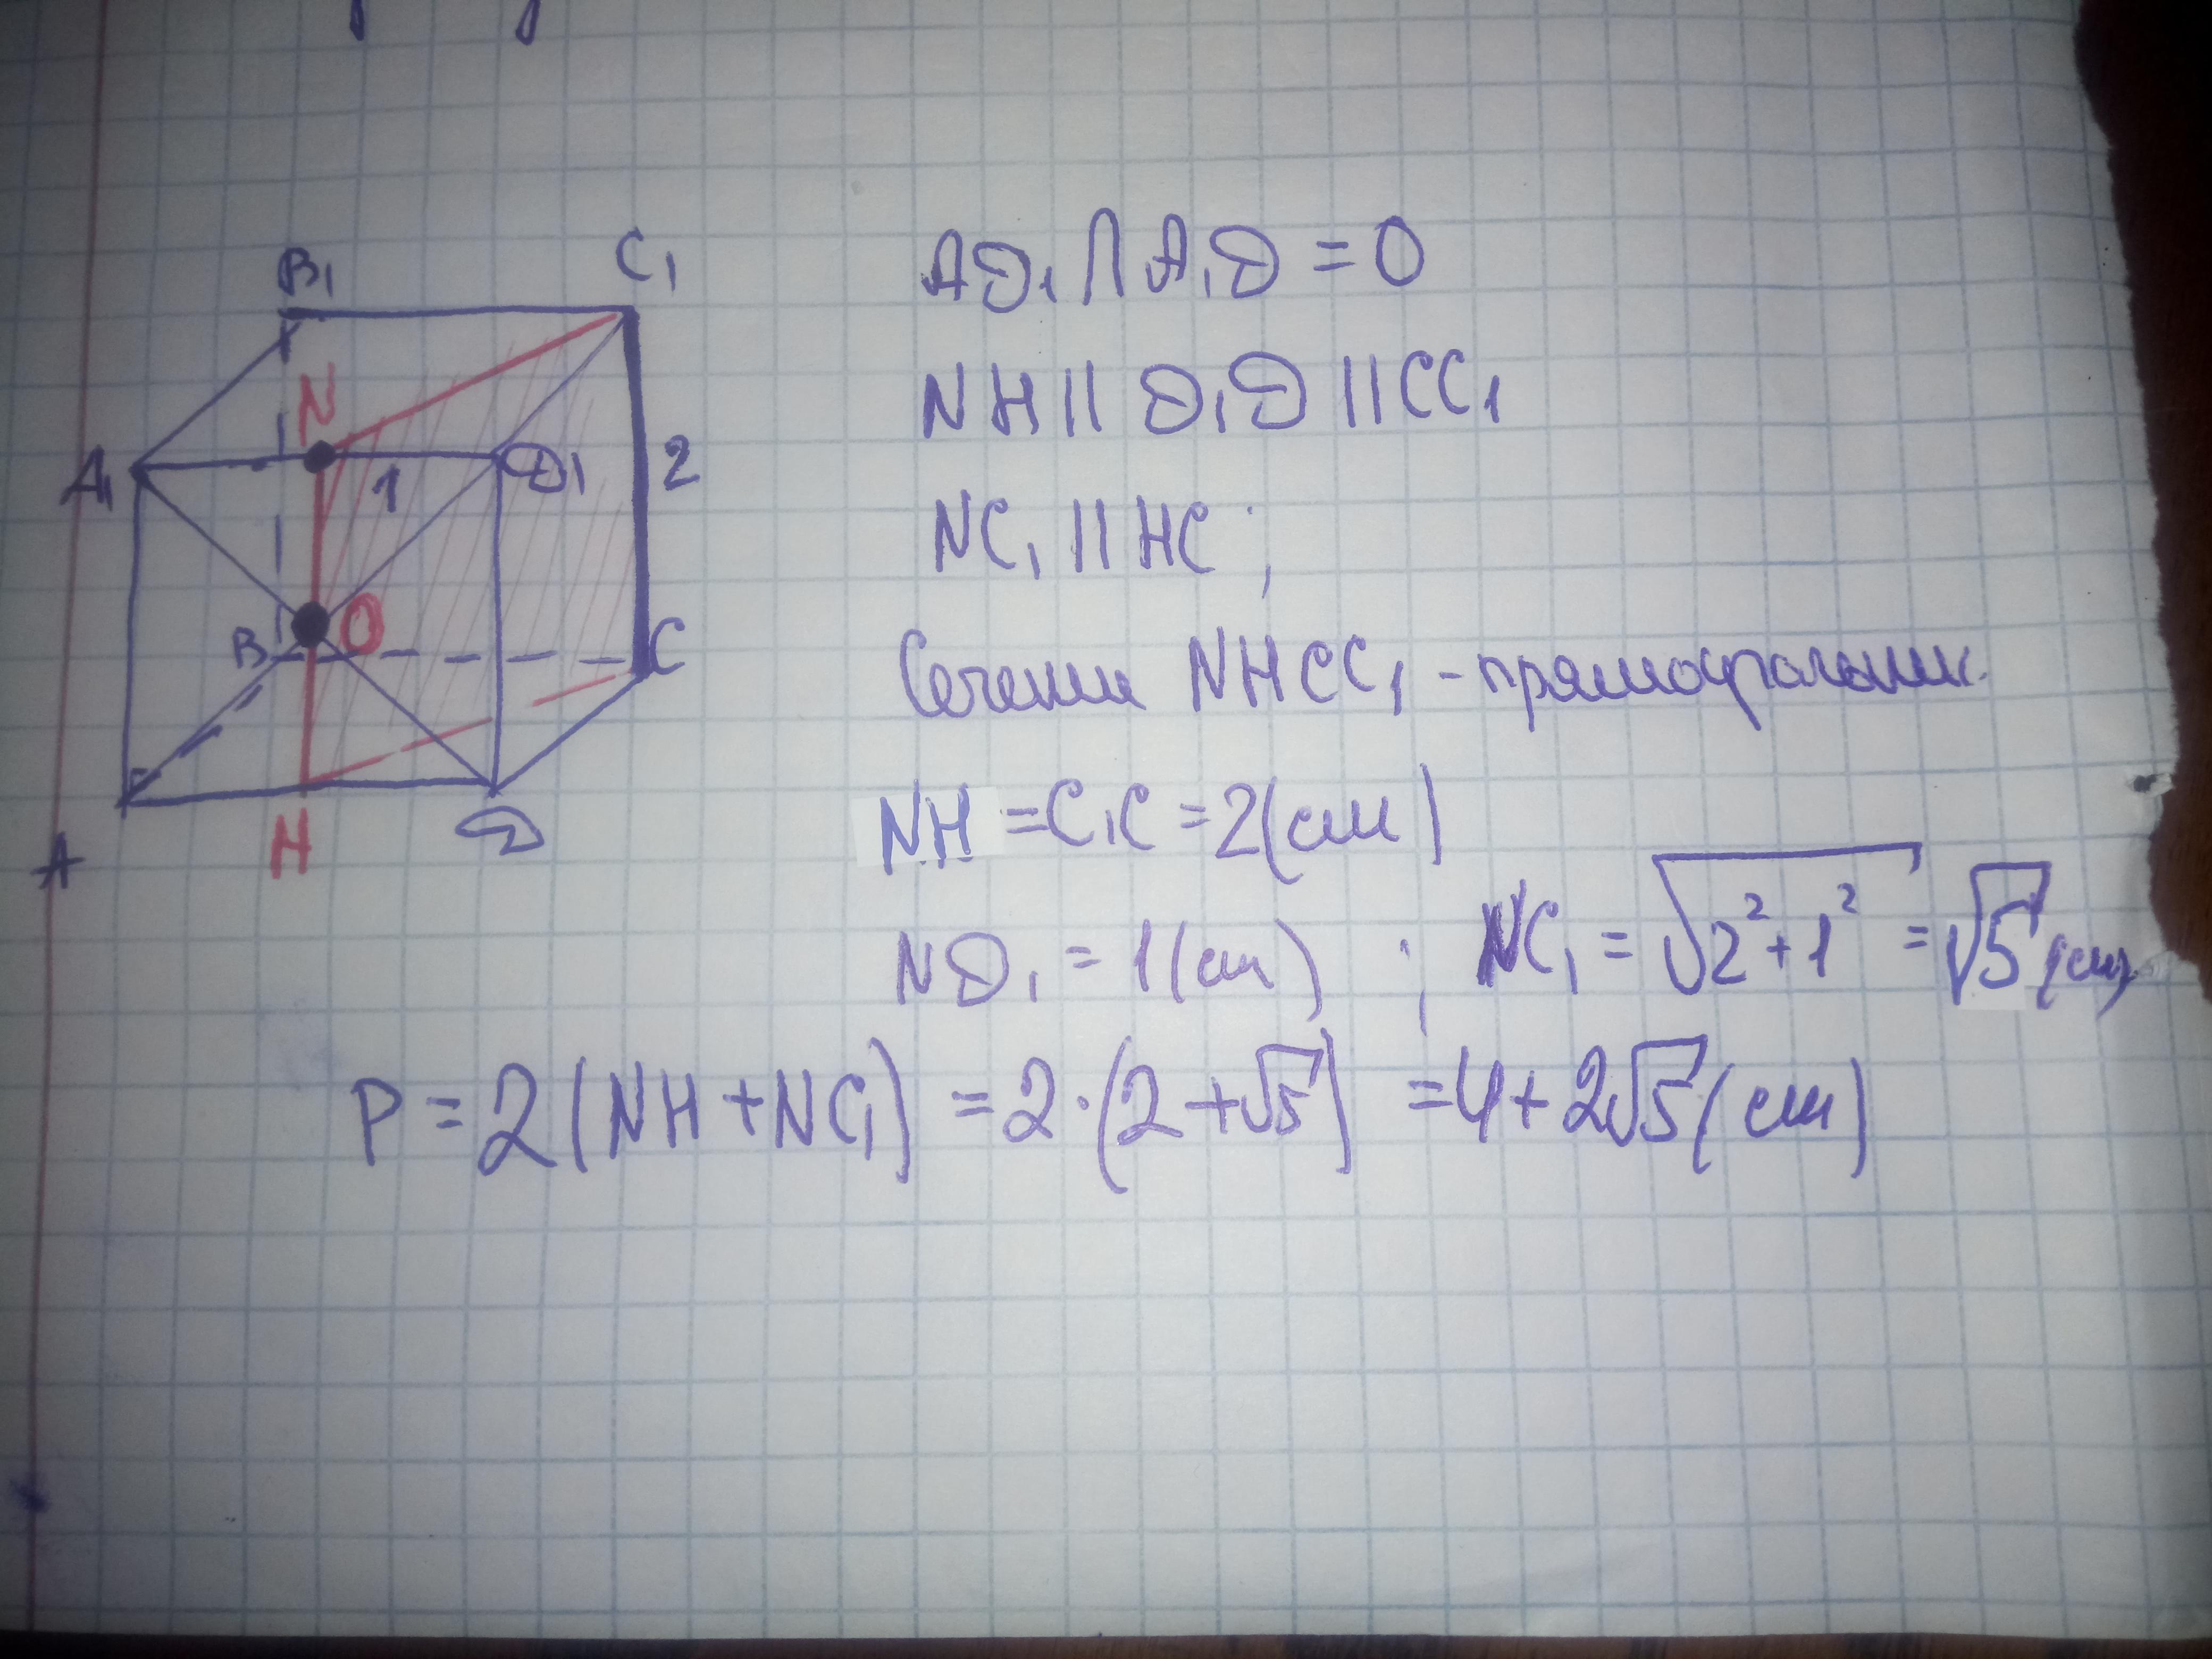 B₁
C₁
N
A₁
1
D₁
2
B
O
C
H
D
A
AD₁ ∩ A₁D = O
NH || D₁D || CC₁
NC₁ || HC ;
Сечение NHCC₁ - прямоугольник.
NH = C₁C = 2 (см)
ND₁ = 1 (см) ; NC₁ = √(2² + 1²) = √5 (см)
P = 2 (NH + NC₁) = 2 · (2 + √5) = 4 + 2√5 (см)